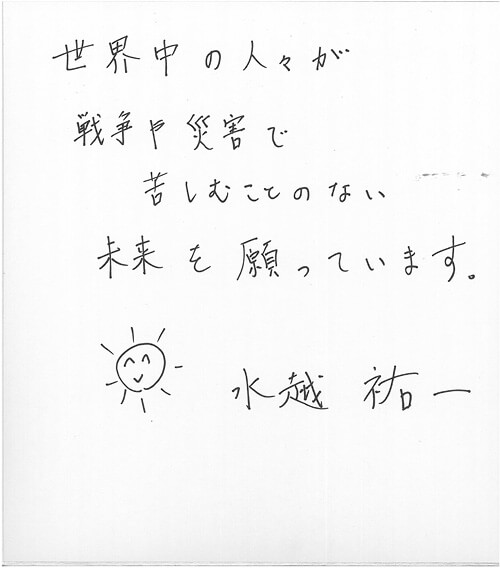 世界中の人々が
戦争や災害で
苦しむことのない
未来を願っています。
水越 祐一